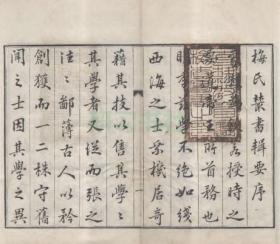 梅氏叢書輯要序
授時之
王所首務也
學不絕如線
西海之士乘機居奇
藉其技以售其學〻
其學者又從而張之
往〻鄙薄古人以矜
創獲而一二株守舊
聞之士因其學之異